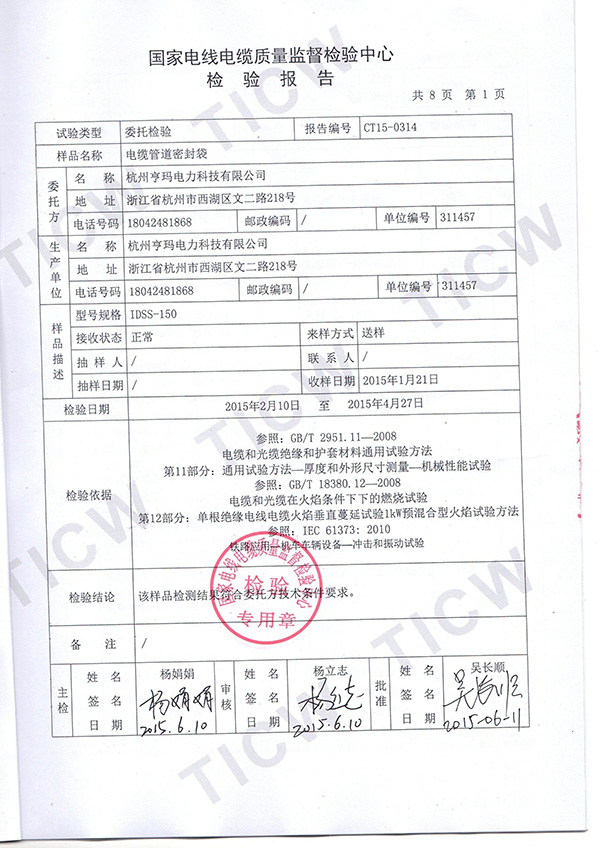 国家电线电缆质量监督检验中心
检 验 报 告
共 8 页 第 1 页
试验类型 委托检验 报告编号 CT15-0314
样品名称 电缆管道密封袋
委托方 名 称 杭州亨玛电力科技有限公司
地 址 浙江省杭州市西湖区文二路218号
电话号码 18042481868 邮政编码 / 单位编号 311457
生产单位 名 称 杭州亨玛电力科技有限公司
地 址 浙江省杭州市西湖区文二路218号
电话号码 18042481868 邮政编码 / 单位编号 311457
样品描述 型号规格 IDSS-150
接收状态 正常 来样方式 送样
抽 样 人 / 联 系 人 /
抽样日期 / 收样日期 2015年1月21日
检验日期 2015年2月10日 至 2015年4月27日
检验依据
参照：GB/T 2951.11—2008
电缆和光缆绝缘和护套材料通用试验方法
第11部分：通用试验方法—厚度和外形尺寸测量—机械性能试验
参照：GB/T 18380.12—2008
电缆和光缆在火焰条件下下的燃烧试验
第12部分：单根绝缘电线电缆火焰垂直蔓延试验1kW预混合型火焰试验方法
参照：IEC 61373: 2010
铁路应用—机车车辆设备—冲击和振动试验
国家电线电缆质量监督检验中心
检验
专用章
检验结论 该样品检测结果符合委托方技术条件要求。
备 注 /
主检 姓 名 杨娟娟 审核 姓 名 杨立志 批准 姓 名 吴长顺
签 名 杨娟娟 签 名 杨立志 签 名 吴长顺
日 期 2015.6.10 日 期 2015.6.10 日 期 2015-06-11
TICW
TICW
TICW
TICW
TICW
TICW
TICW